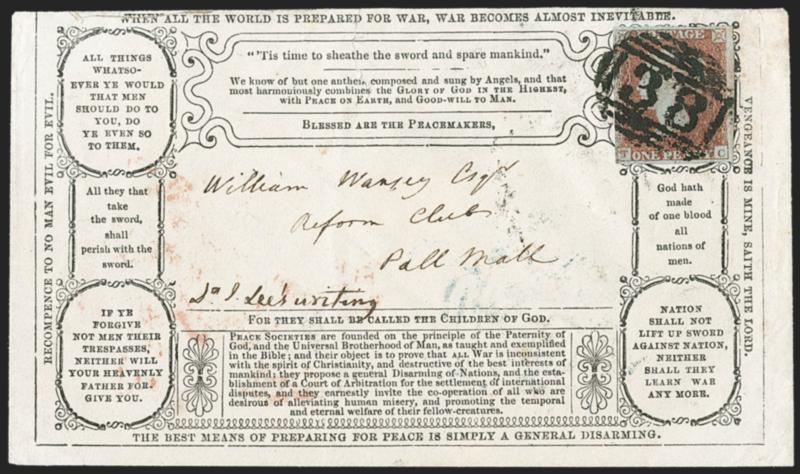 WHEN ALL THE WORLD IS PREPARED FOR WAR, WAR BECOMES ALMOST INEVITABLE.
ALL THINGS
WHATSO-
EVER YE WOULD
THAT MEN
SHOULD DO TO
YOU, DO
YE EVEN SO
TO THEM.
"'Tis time to sheathe the sword and spare mankind."
We know of but one anthem, composed and sung by Angels, and that
most harmoniously combines the GLORY OF GOD IN THE HIGHEST,
with PEACE ON EARTH, and GOOD-WILL TO MAN.
BLESSED ARE THE PEACEMAKERS,
POSTAGE
38
C
ONE PENNY
RECOMPENCE TO NO MAN EVIL FOR EVIL.
VENGEANCE IS MINE, SAITH THE LORD.
All they that
take
the sword,
shall
perish with the
sword.
William Wansey Esqr
Reform Club
Pall Mall
Dr J. Lee's writing
God hath
made
of one blood
all
nations of
men.
IF YE
FORGIVE
NOT MEN THEIR
TRESPASSES,
NEITHER WILL
YOUR HEAVENLY
FATHER FOR-
GIVE YOU.
FOR THEY SHALL BE CALLED THE CHILDREN OF GOD.
PEACE SOCIETIES are founded on the principle of the Paternity of
God, and the Universal Brotherhood of Man, as taught and exemplified
in the Bible; and their object is to prove that ALL War is inconsistent
with the spirit of Christianity, and destructive of the best interests of
mankind; they propose a general Disarming of Nations, and the esta-
blishment of a Court of Arbitration for the settlement of international
disputes, and they earnestly invite the co-operation of all who are
desirous of alleviating human misery, and promoting the temporal
and eternal welfare of their fellow-creatures.
NATION
SHALL NOT
LIFT UP SWORD
AGAINST NATION,
NEITHER
SHALL THEY
LEARN WAR
ANY MORE.
THE BEST MEANS OF PREPARING FOR PEACE IS SIMPLY A GENERAL DISARMING.